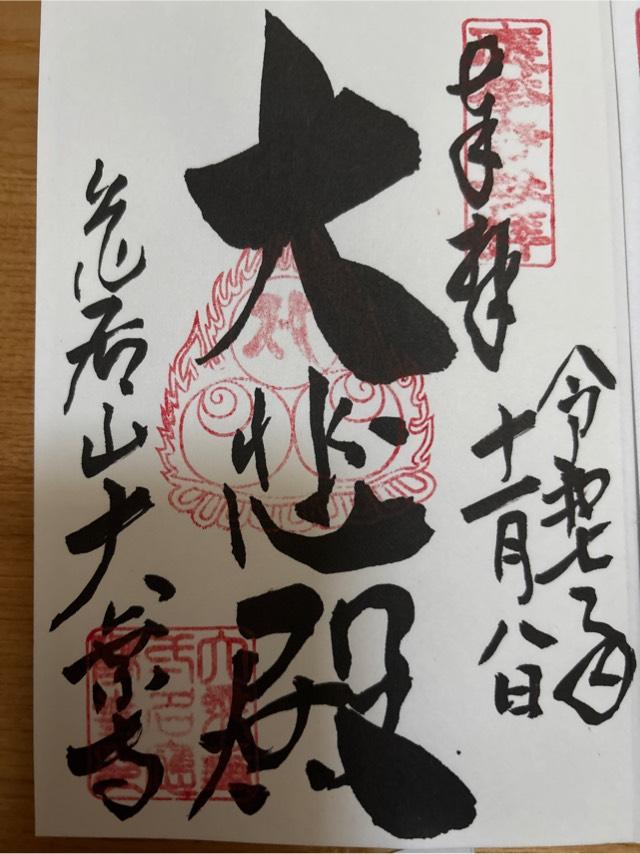 奉拝
令和七年
十一月八日
大悲殿
亀居山大乗寺